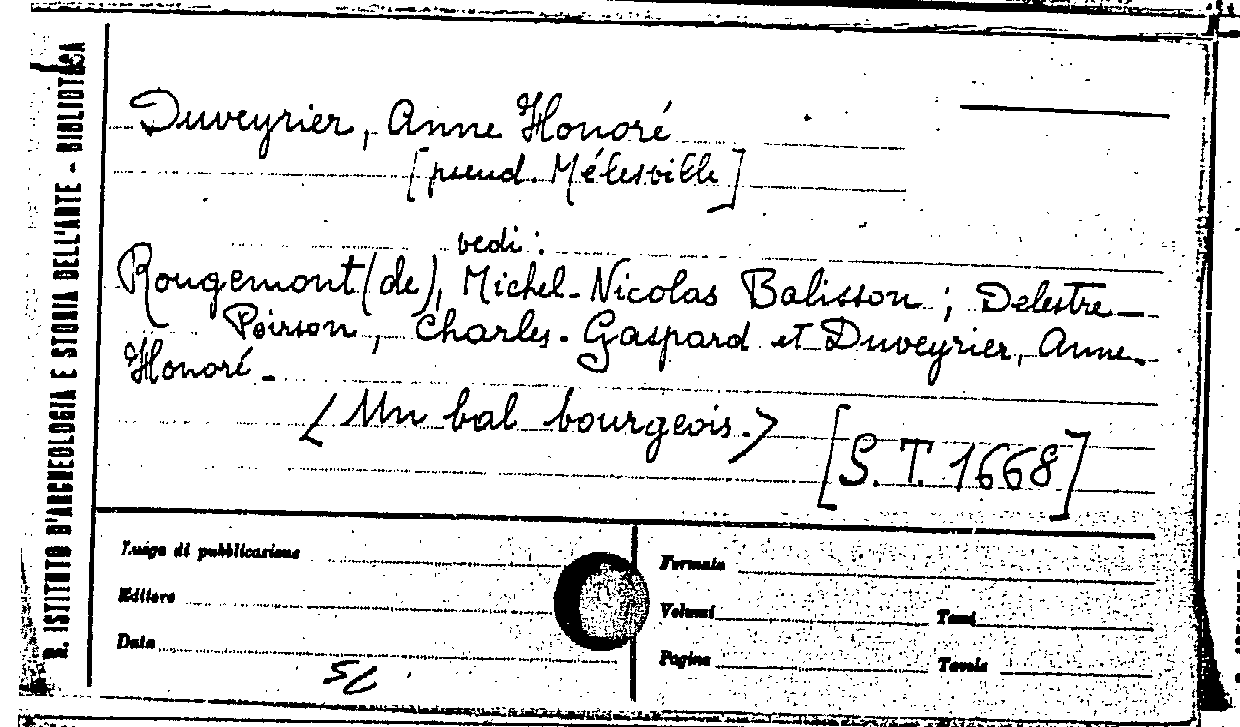 R. ISTITUTO D'ARCHEOLOGIA E STORIA DELL'ARTE - BIBLIOTECA
Duveyrier, Anne Honoré
[pseud. Mélesville]
vedi:
Rougemont (de), Michel-Nicolas Balisson; Delestre-
Poirson, Charles-Gaspard et Duveyrier, Anne-
Honoré.-
<Un bal bourgeois.>
[S. T. 1668]
Luogo di pubblicazione
Editore
Data
Formato
Volumi Tomi
Pagine Tavole